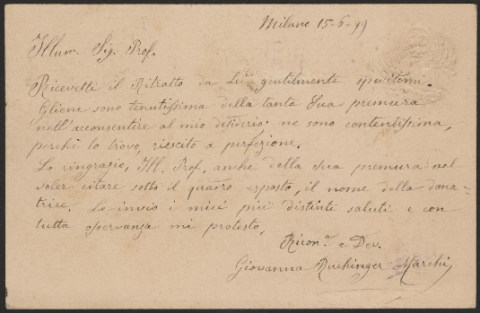 Milano 15-6-99
Illum. Sig. Prof.
Ricevetti il Ritratto da Lei gentilmente speditomi.
Gliene sono tenutissima della tanta Sua premura
nell'acconsentire al mio desiderio: ne sono contentissima,
perchè lo trovo, riescito a perfezione.
La ringrazio, Ill. Prof. anche della Sua premura nel
voler citare sotto il quadro esposto, il nome della dona-
trice. Le invio i miei più distinti saluti e con
tutta osservanza mi protesto,
Ricon.ma e Dev.
Giovanna Marchi